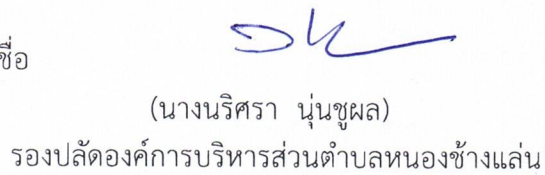 ชื่อ
(นางนริศรา นุ่นชูผล)
รองปลัดองค์การบริหารส่วนตำบลหนองช้างแล่น